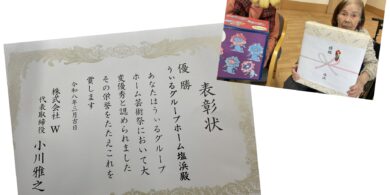 表彰状
優勝
うぃるグループホーム塩浜殿
あなたはうぃるグループ
ホーム芸術祭において大
変優秀と認められました
その栄誉をたたえこれを
賞します
令和八年三月吉日
株式会社 W
代表取締役 小川雅之